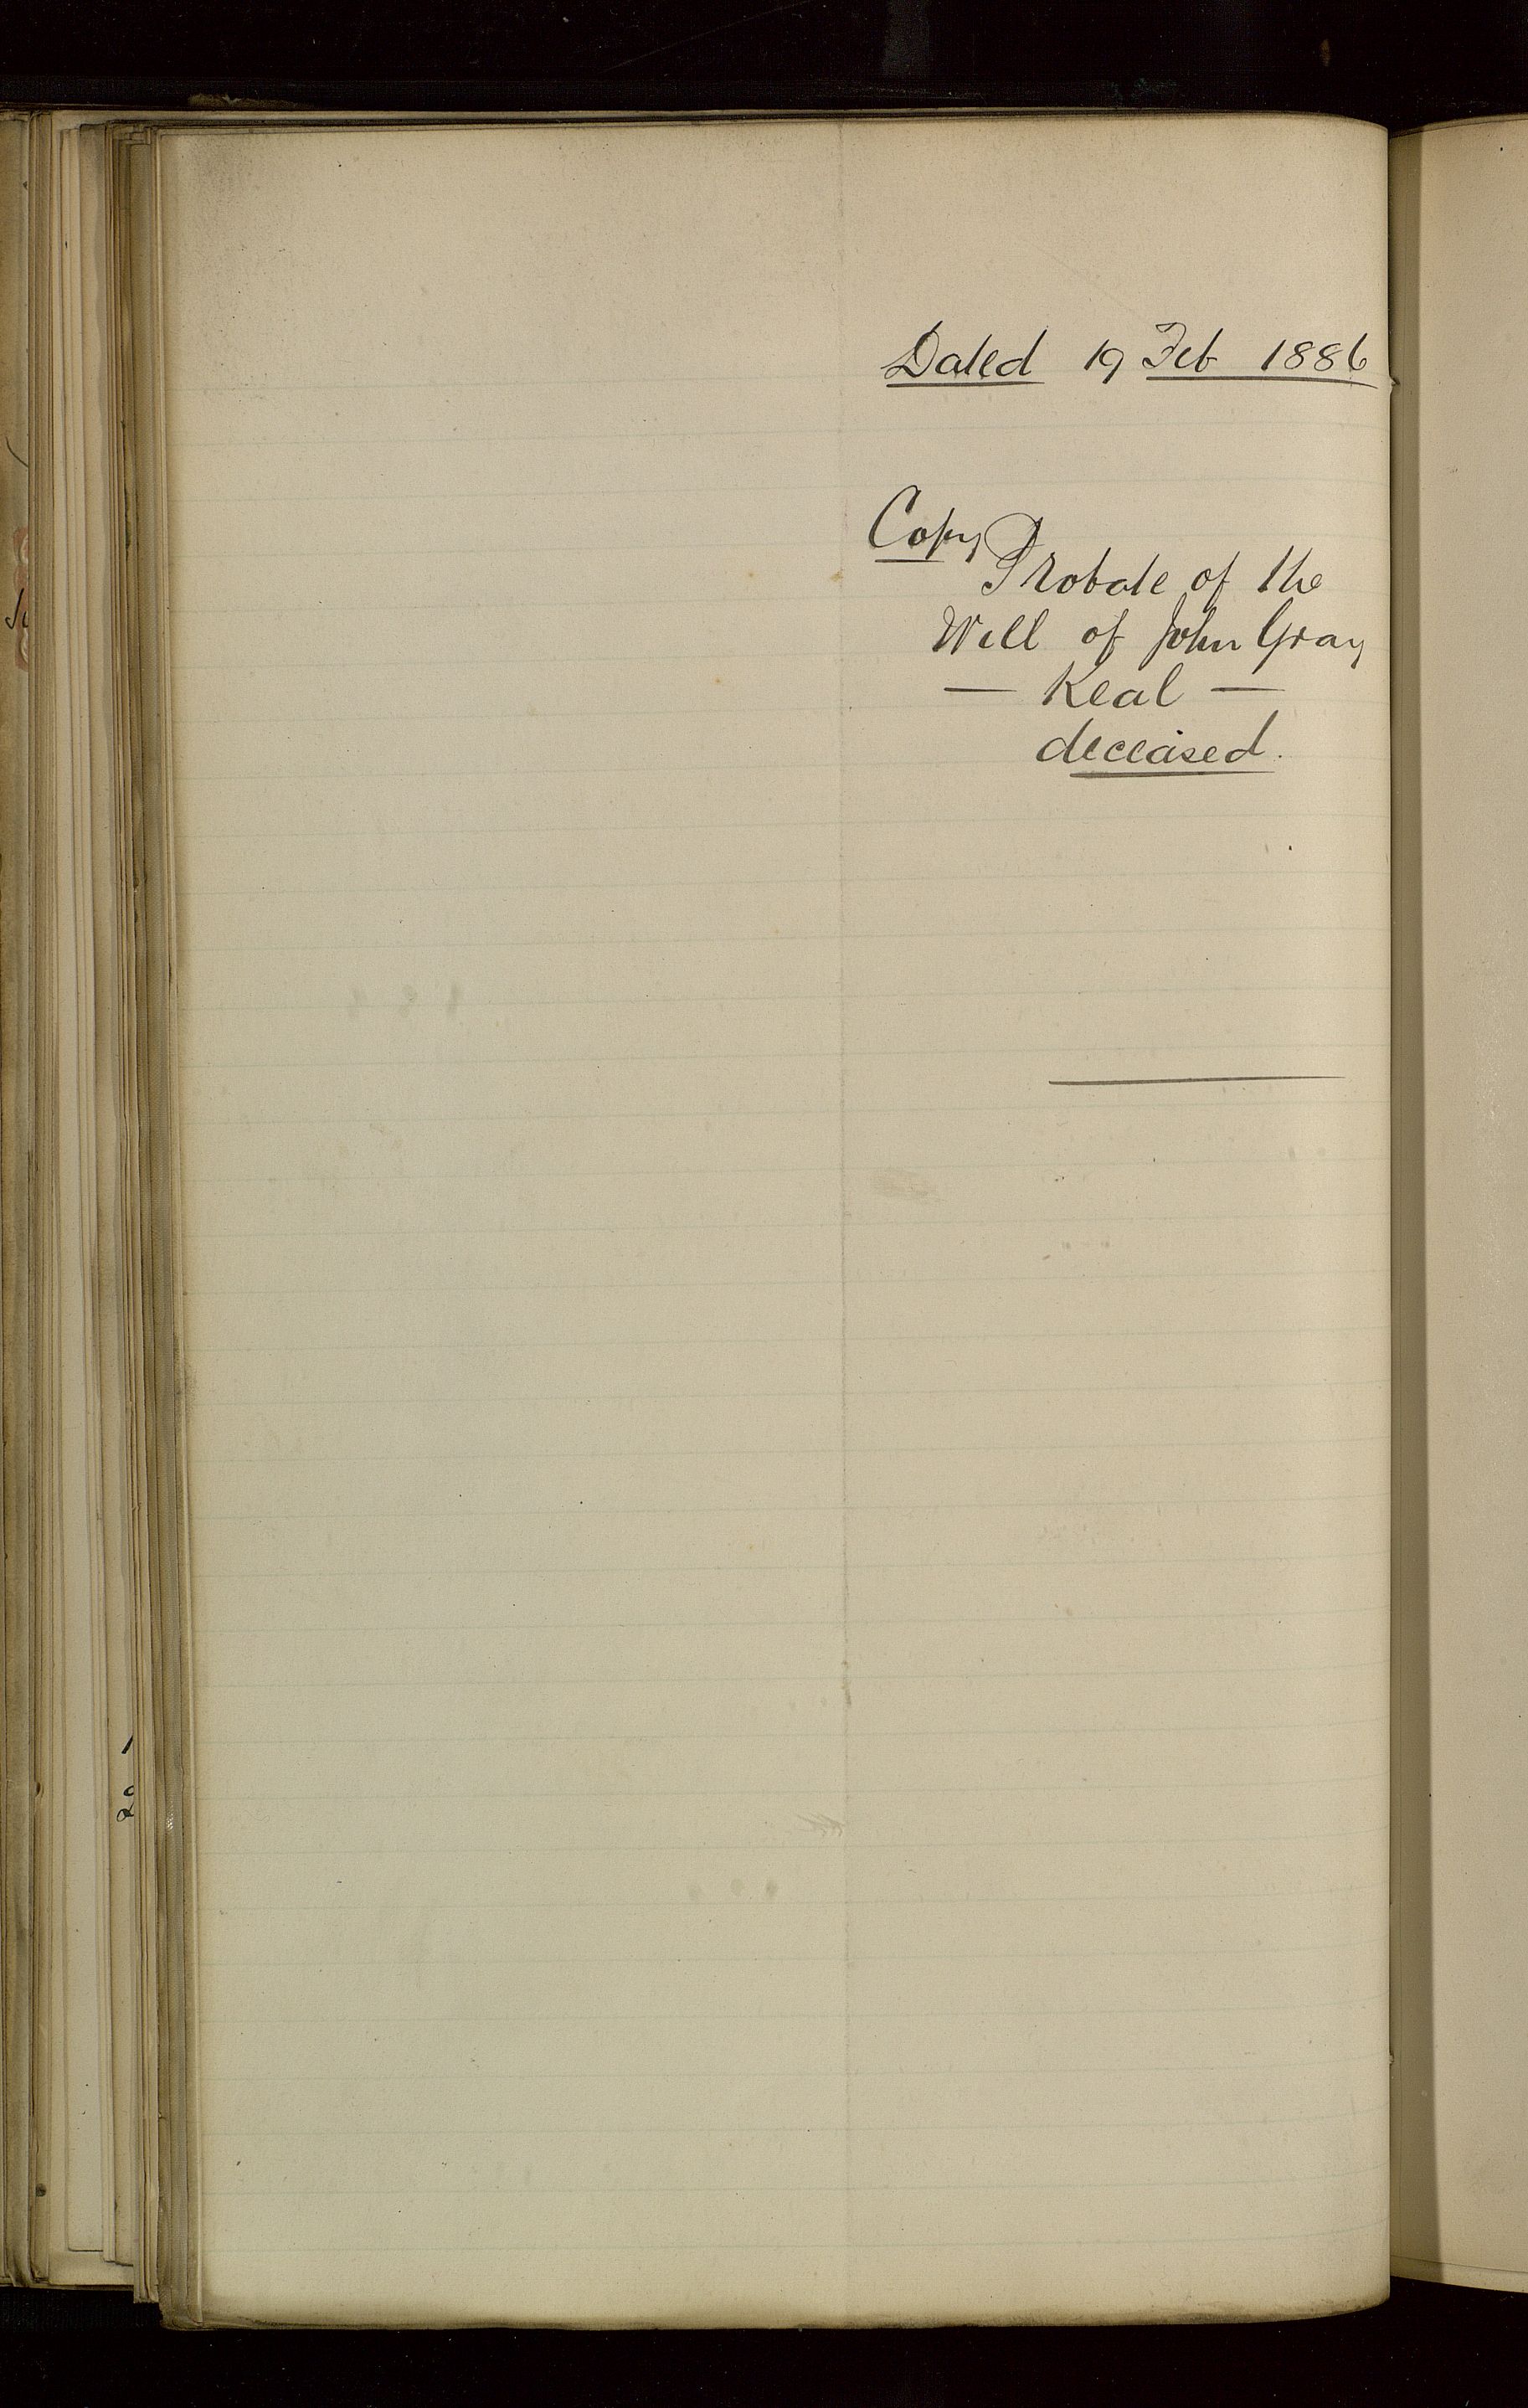 Dated 19 Feb 1886
Copy
Probate of the
Will of John Gray
— Keal —
deceased.